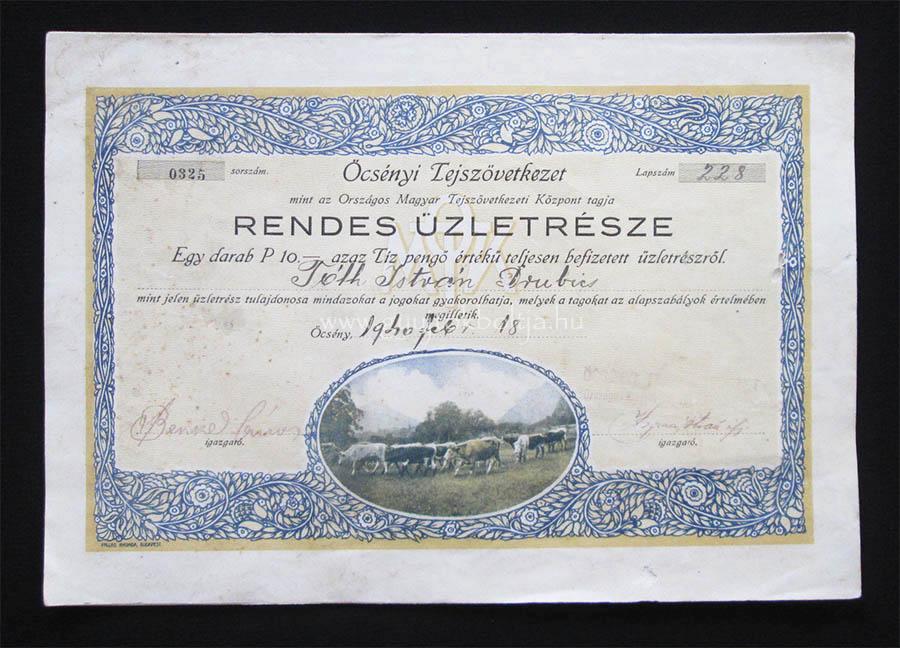 0325 sorszám. Öcsényi Tejszövetkezet Lapszám 228
mint az Országos Magyar Tejszövetkezeti Központ tagja
RENDES ÜZLETRÉSZE
Egy darab P 10.— azaz Tíz pengő értékű teljesen befizetett üzletrészről.
Tóth István Drubics
mint jelen üzletrész tulajdonosa mindazokat a jogokat gyakorolhatja, melyek a tagokat az alapszabályok értelmében
megilletik.
Öcsény, 1940 febr. 18
igazgató. igazgató.
PALLAS NYOMDA, BUDAPEST